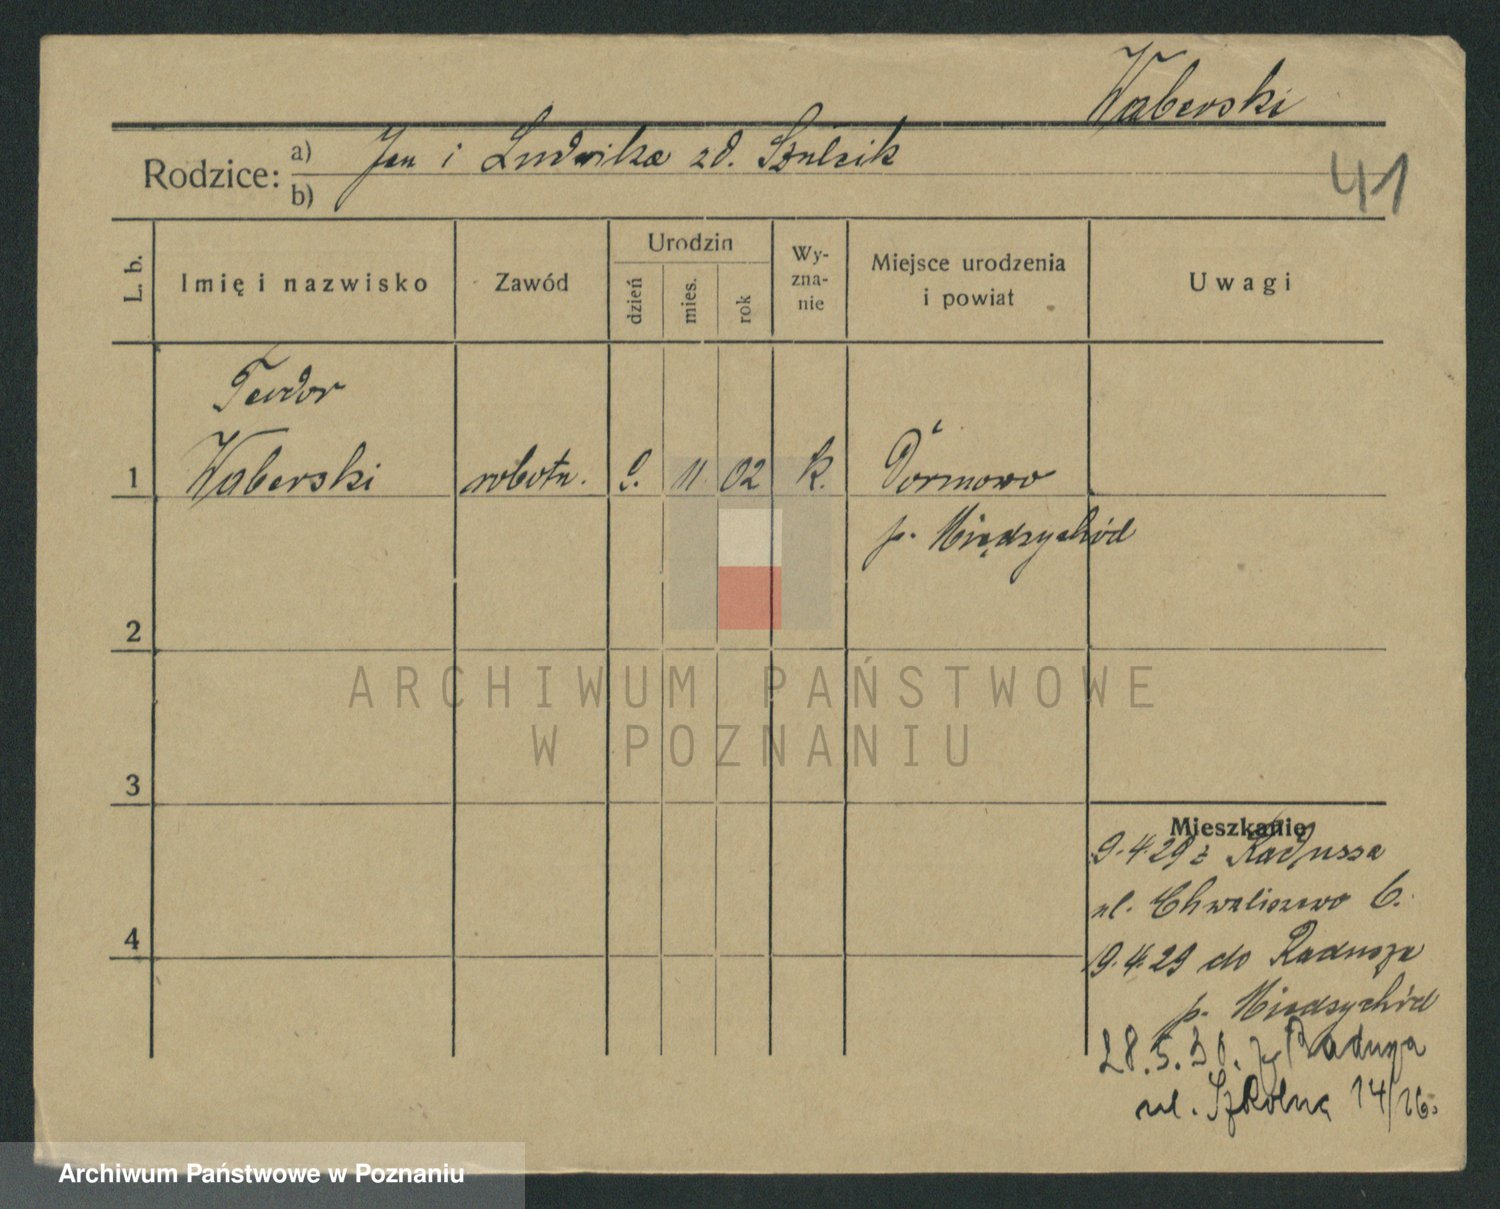 Waberski
Rodzice: a) Jan i Ludwika zd. Szulcik
b)
41
L. b. Imię i nazwisko Zawód Urodzin dzień mies. rok Wy-zna-nie Miejsce urodzenia i powiat Uwagi
Teodor
1 Waberski robotn. 9. 11. 02 k. Dormowo
p. Międzychód
2
ARCHIWUM PAŃSTWOWE
W POZNANIU
3
Mieszkanie
9.4.29 z Radusza
ul. Chwaliszewo 6.
4
19.4.29 do Radusza
p. Międzychód
28.5.30. z Radusza
ul. Szkolna 14/16.
Archiwum Państwowe w Poznaniu